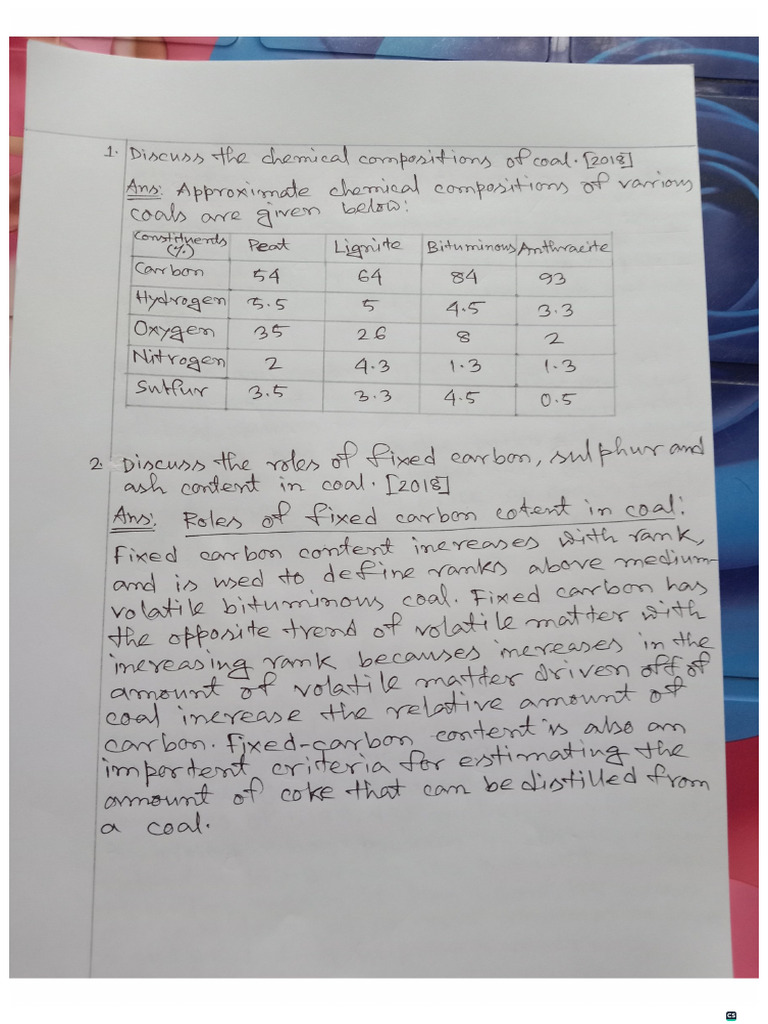 1. Discuss the chemical compositions of coal. [2018]
Ans: Approximate chemical compositions of various
coals are given below:
Constituents (%) Peat Lignite Bituminous Anthracite
Carbon 54 64 84 93
Hydrogen 5.5 5 4.5 3.3
Oxygen 35 26 8 2
Nitrogen 2 4.3 1.3 1.3
Sulfur 3.5 3.3 4.5 0.5
2. Discuss the roles of fixed carbon, sulphur and
ash content in coal. [2018]
Ans: Roles of fixed carbon cotent in coal:
Fixed carbon content increases with rank,
and is used to define ranks above medium-
volatile bituminous coal. Fixed carbon has
the opposite trend of volatile matter with
increasing rank becauses increases in the
amount of volatile matter driven off of
coal increase the relative amount of
carbon. Fixed-carbon content is also an
importent criteria for estimating the
amount of coke that can be distilled from
a coal.
CS